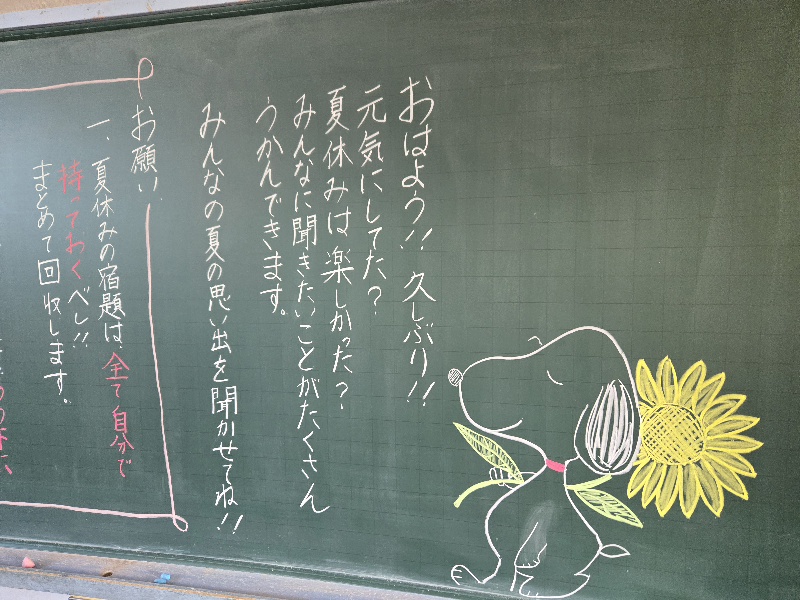 おはよう!! 久しぶり!!
元気にしてた?
夏休みは楽しかった?
みんなに聞きたいことがたくさん
うかんできます。
みんなの夏の思い出を聞かせてね!!
お願い
一、夏休みの宿題は、全て自分で
持っておくべし!!
まとめて回収します。